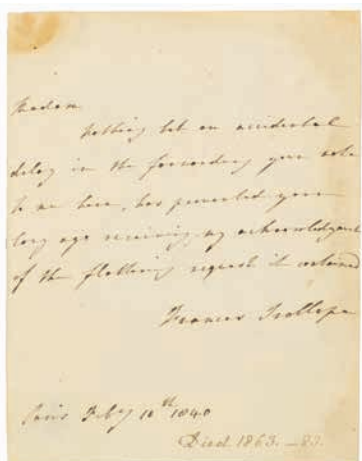 Madam
Nothing but an accidental
delay in the forwarding your note
to me here, has prevented your
long ago receiving my acknowledgment
of the flattering request it contained
Frances Trollope
Paris Feby 10th 1840
Died 1863. - 83.